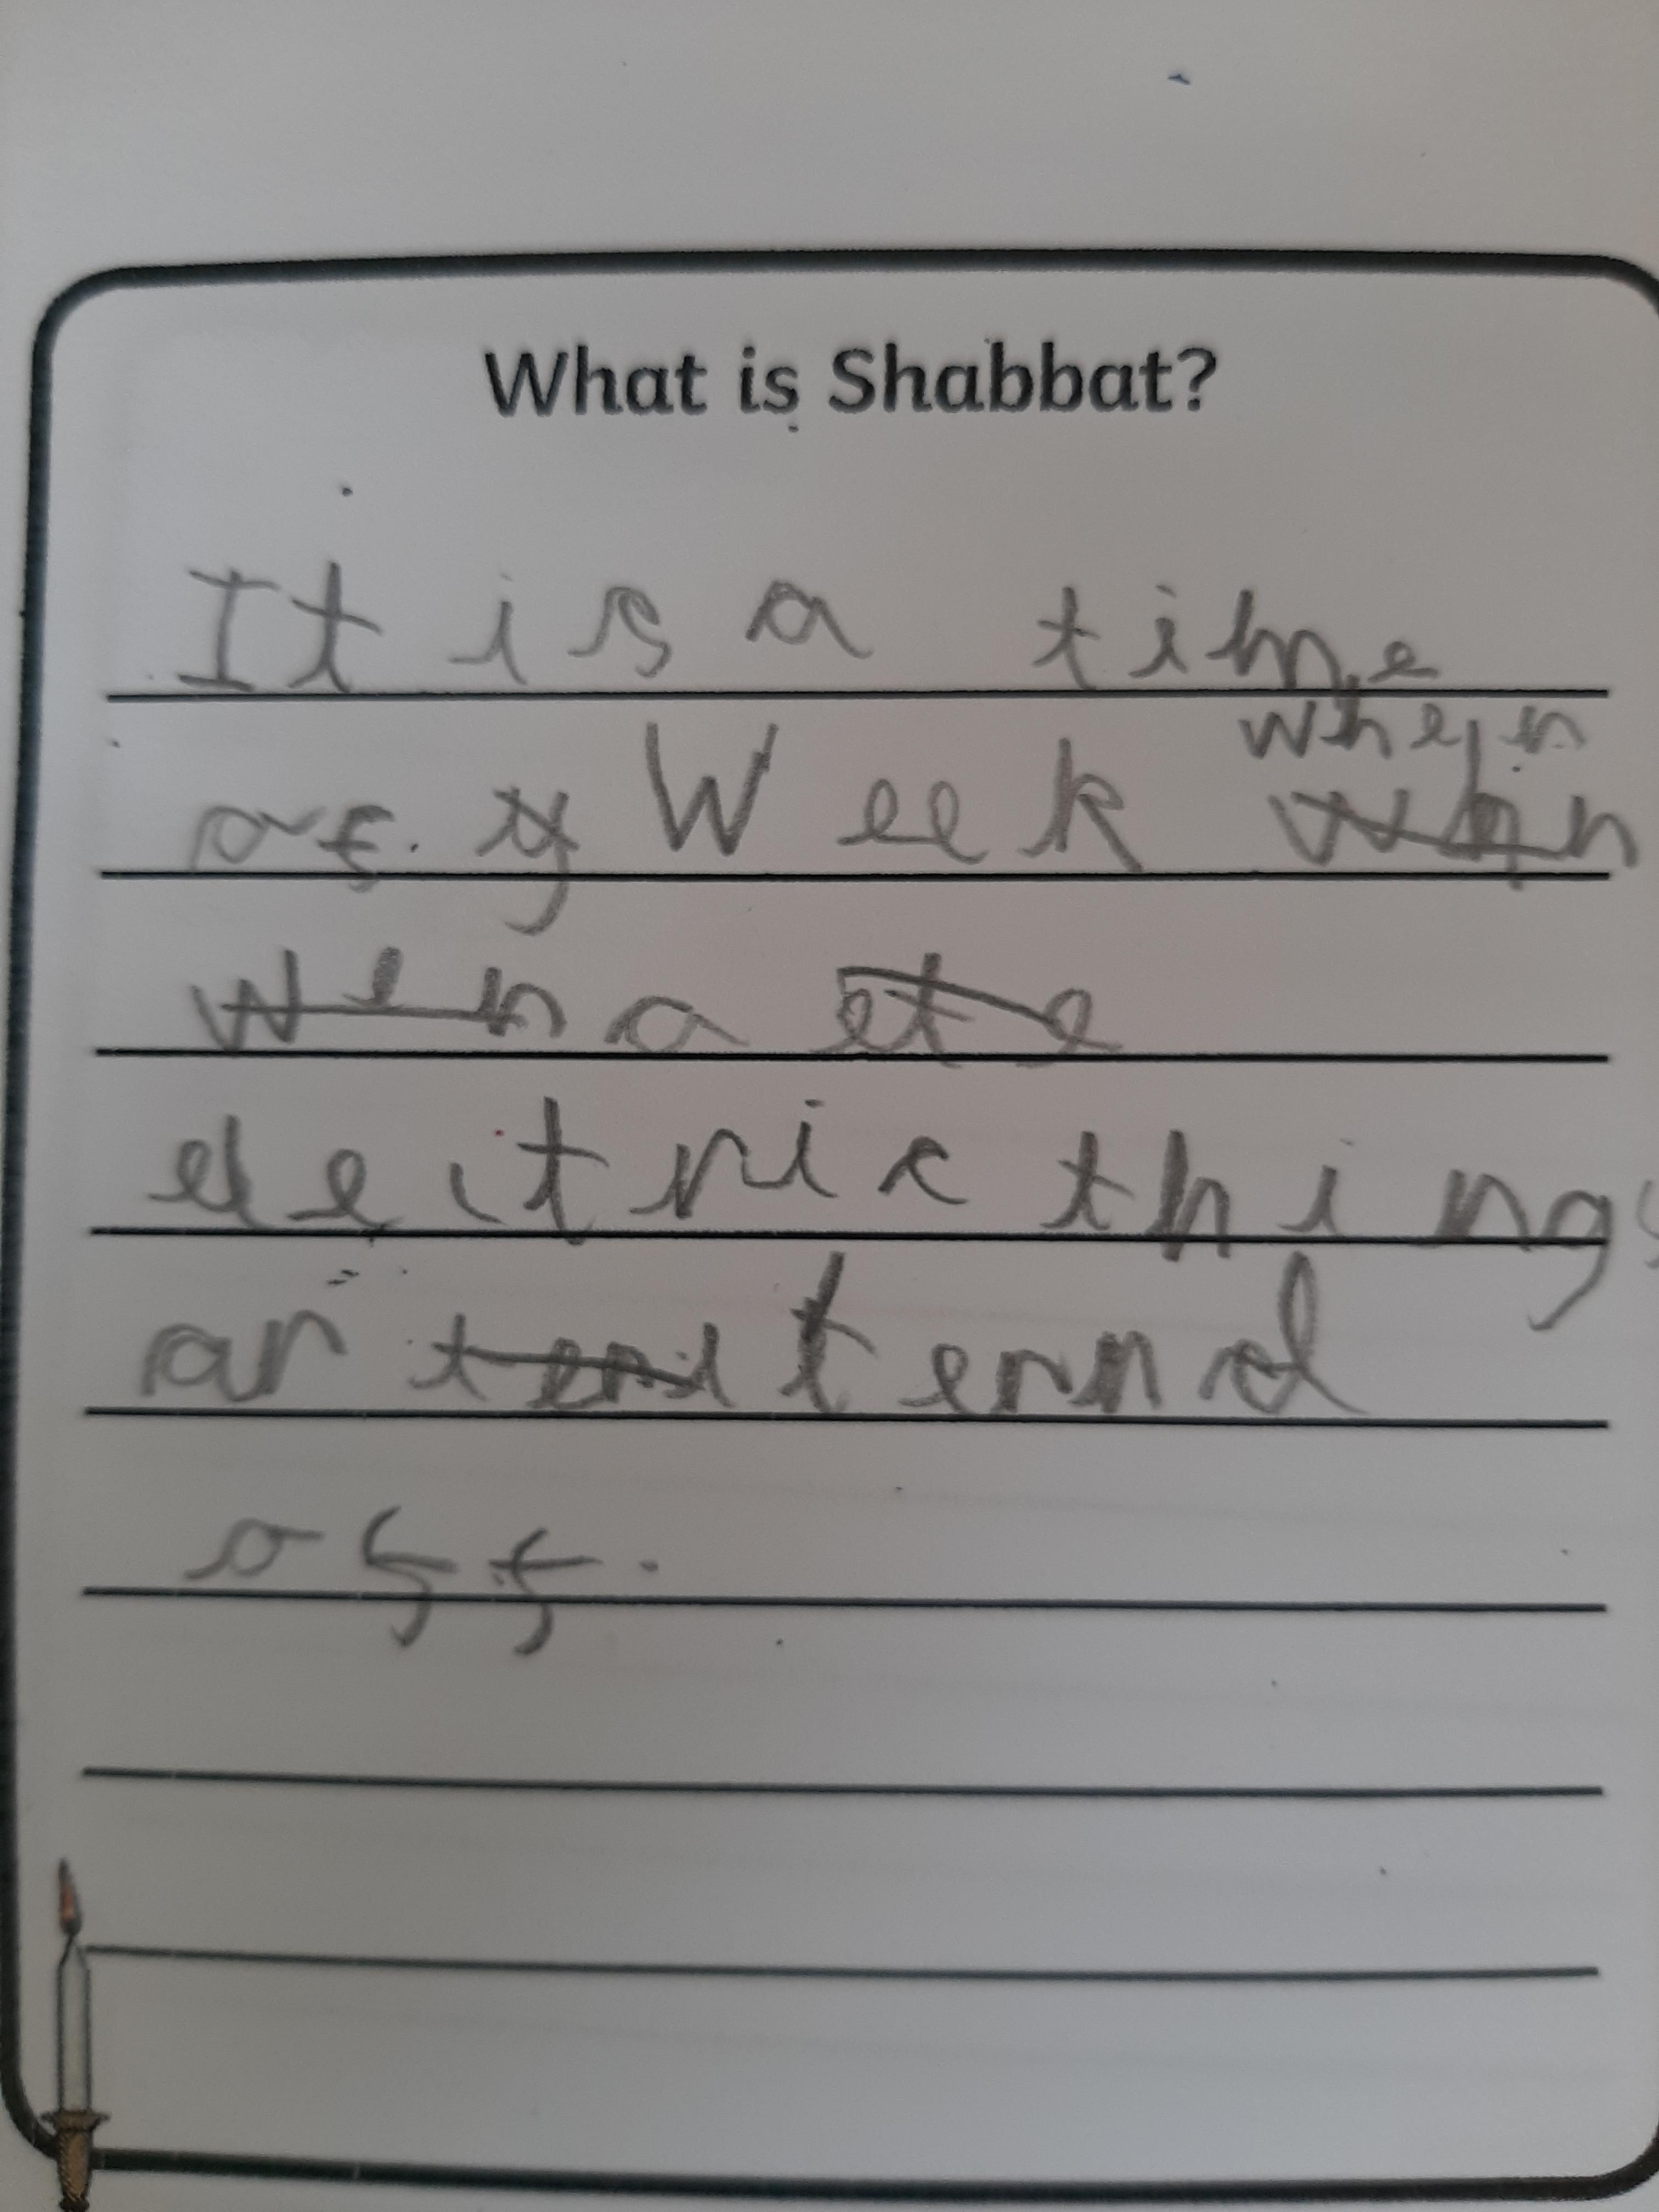 What is Shabbat?
It is a time
of. Week when
wen a
electric things
ar ternd
off.